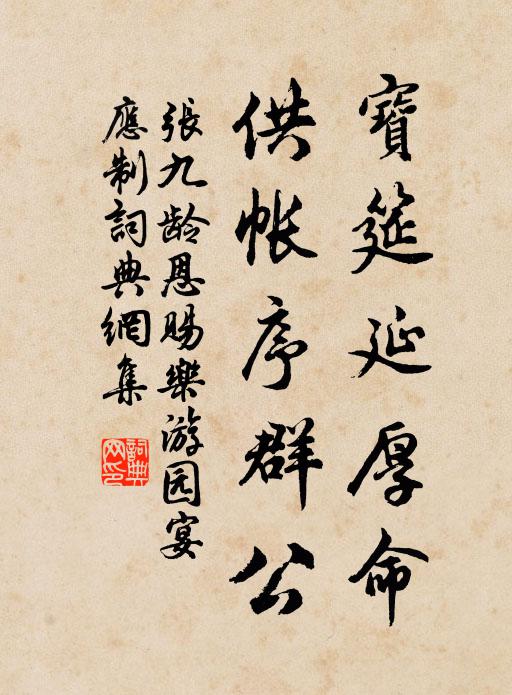 寶筵延厚命
供帐序群公
張九龄恩賜樂游园宴
應制詞典網集
詞典网印